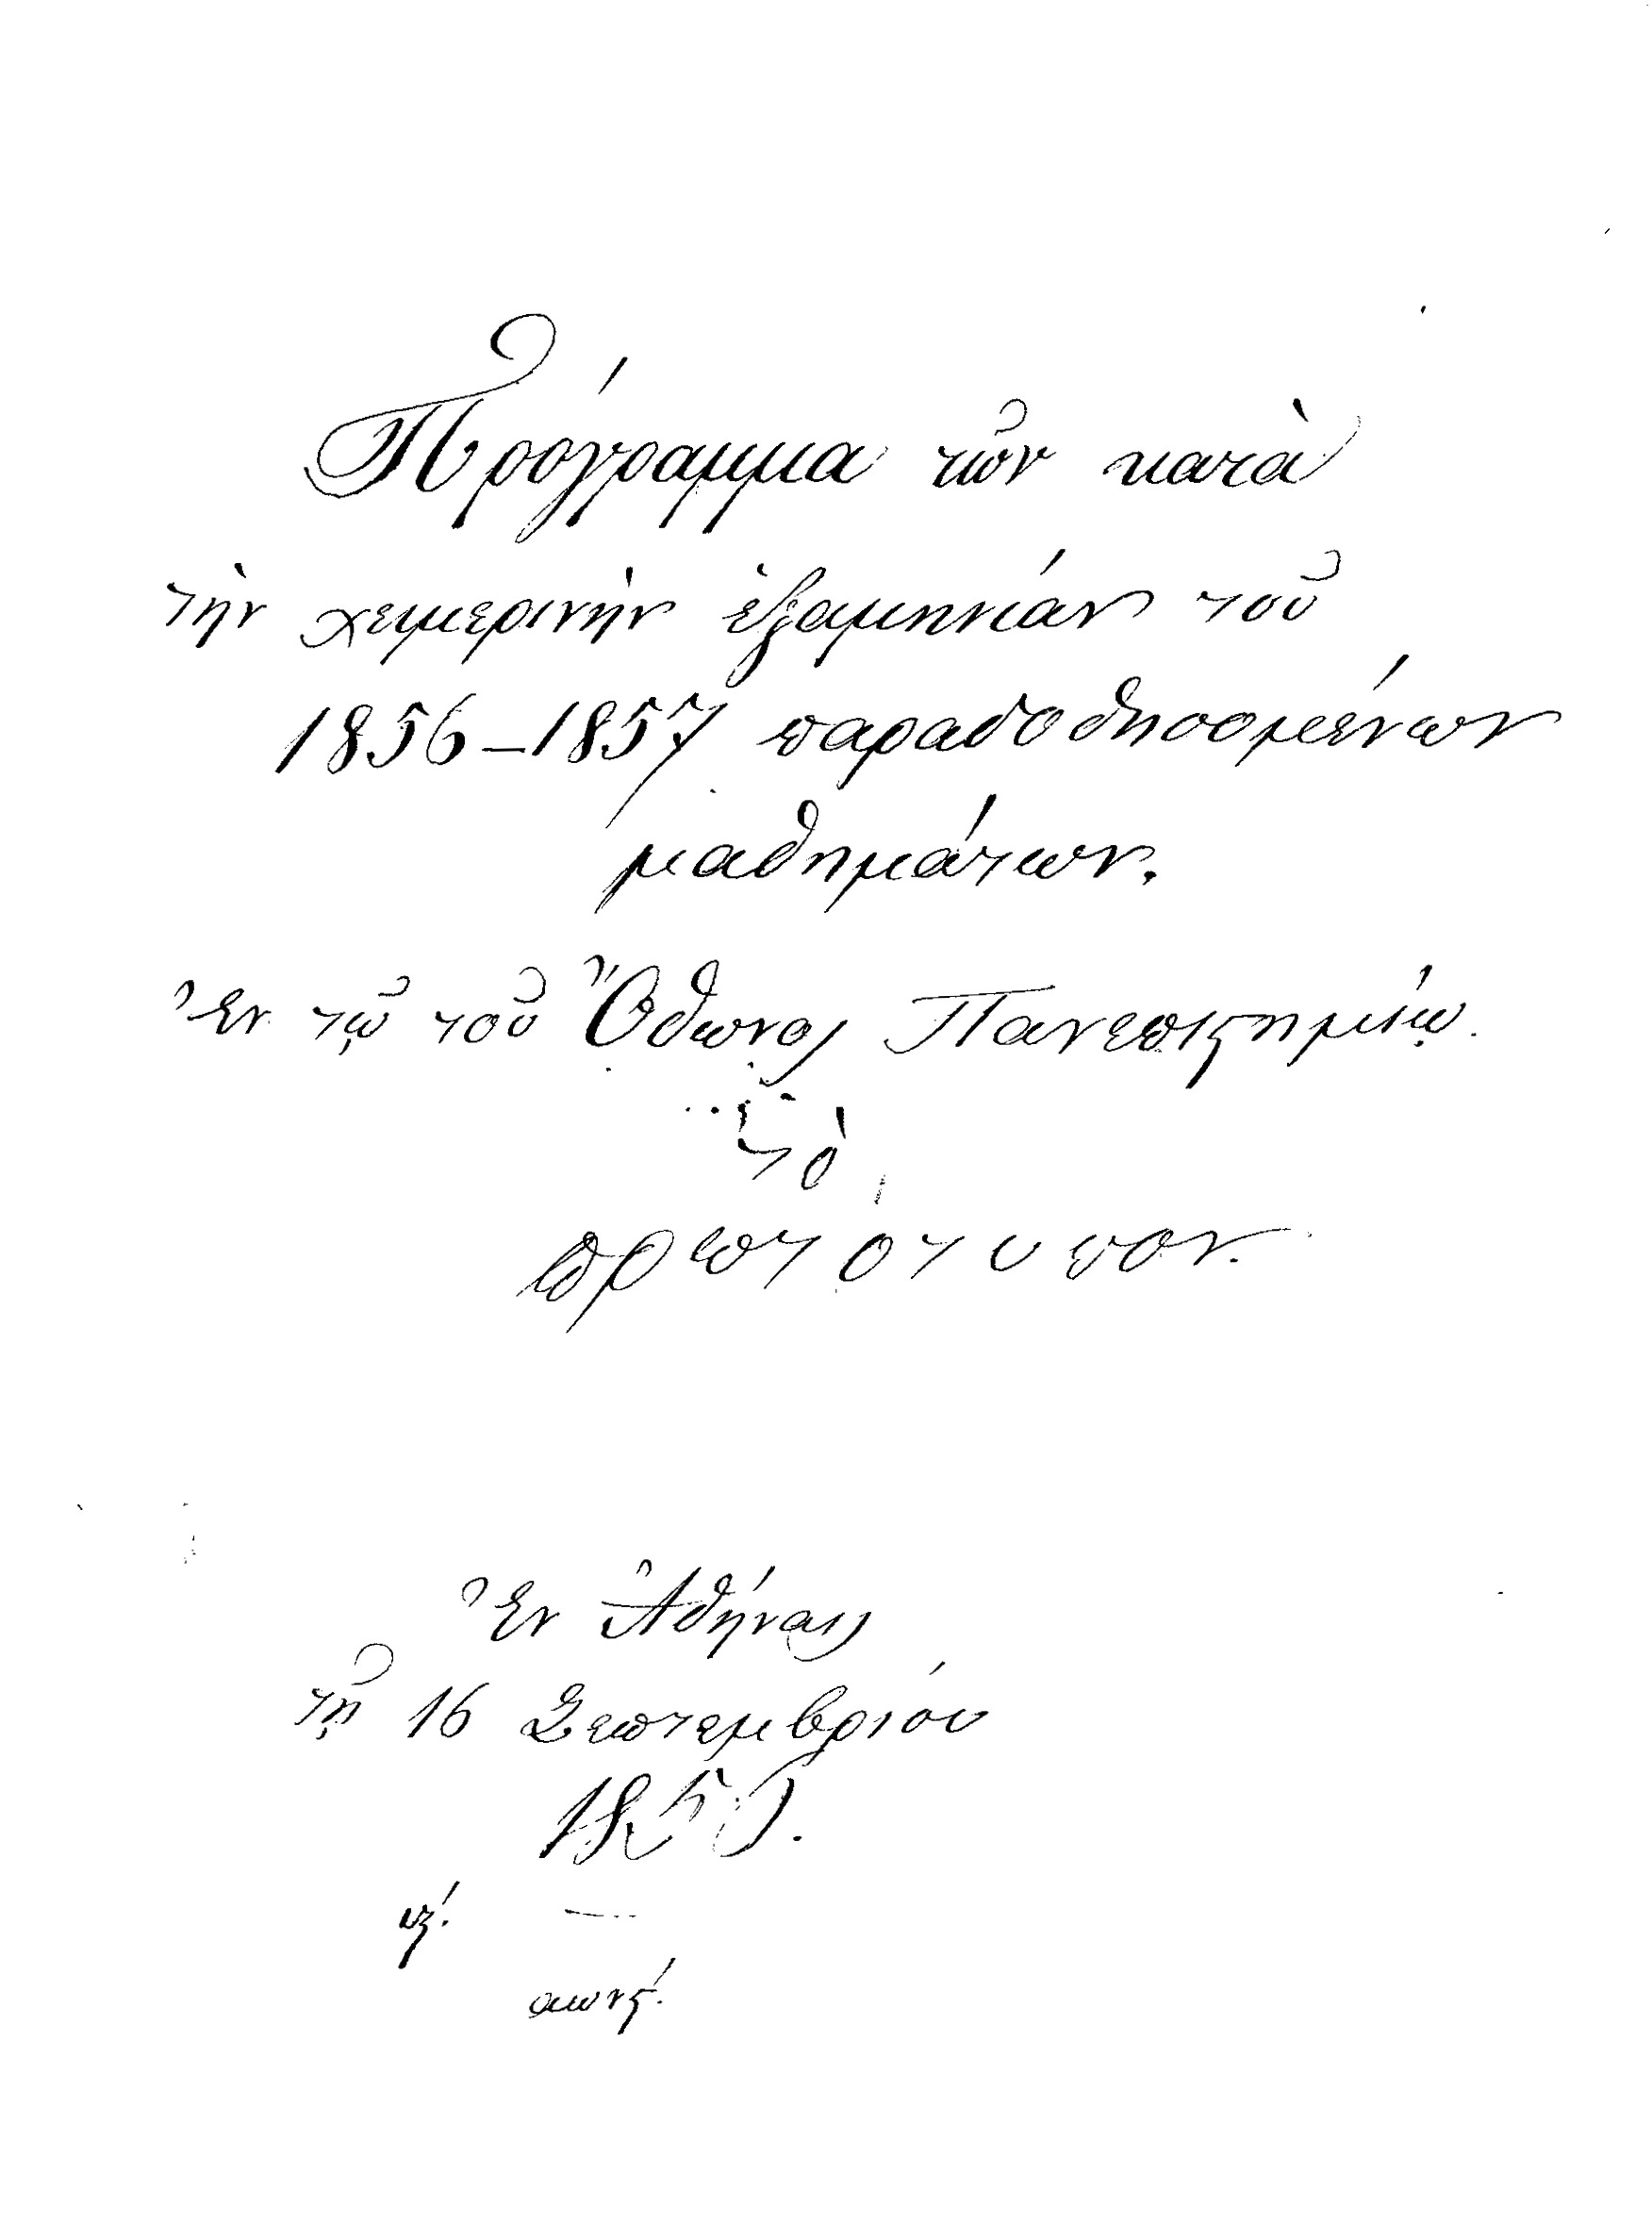 Πρόγραμμα τῶν κατὰ
τὴν χειμερινὴν ἑξαμηνίαν τοῦ
1856–1857 παραδοθησομένων
μαθημάτων.
Ἐν τῷ τοῦ Ὄθωνος Πανεπιςημίῳ.
τὸ
πρωτότυπον.
Ἐν Ἀθήναις
τῇ 16 Σεπτεμβρίου
1856.